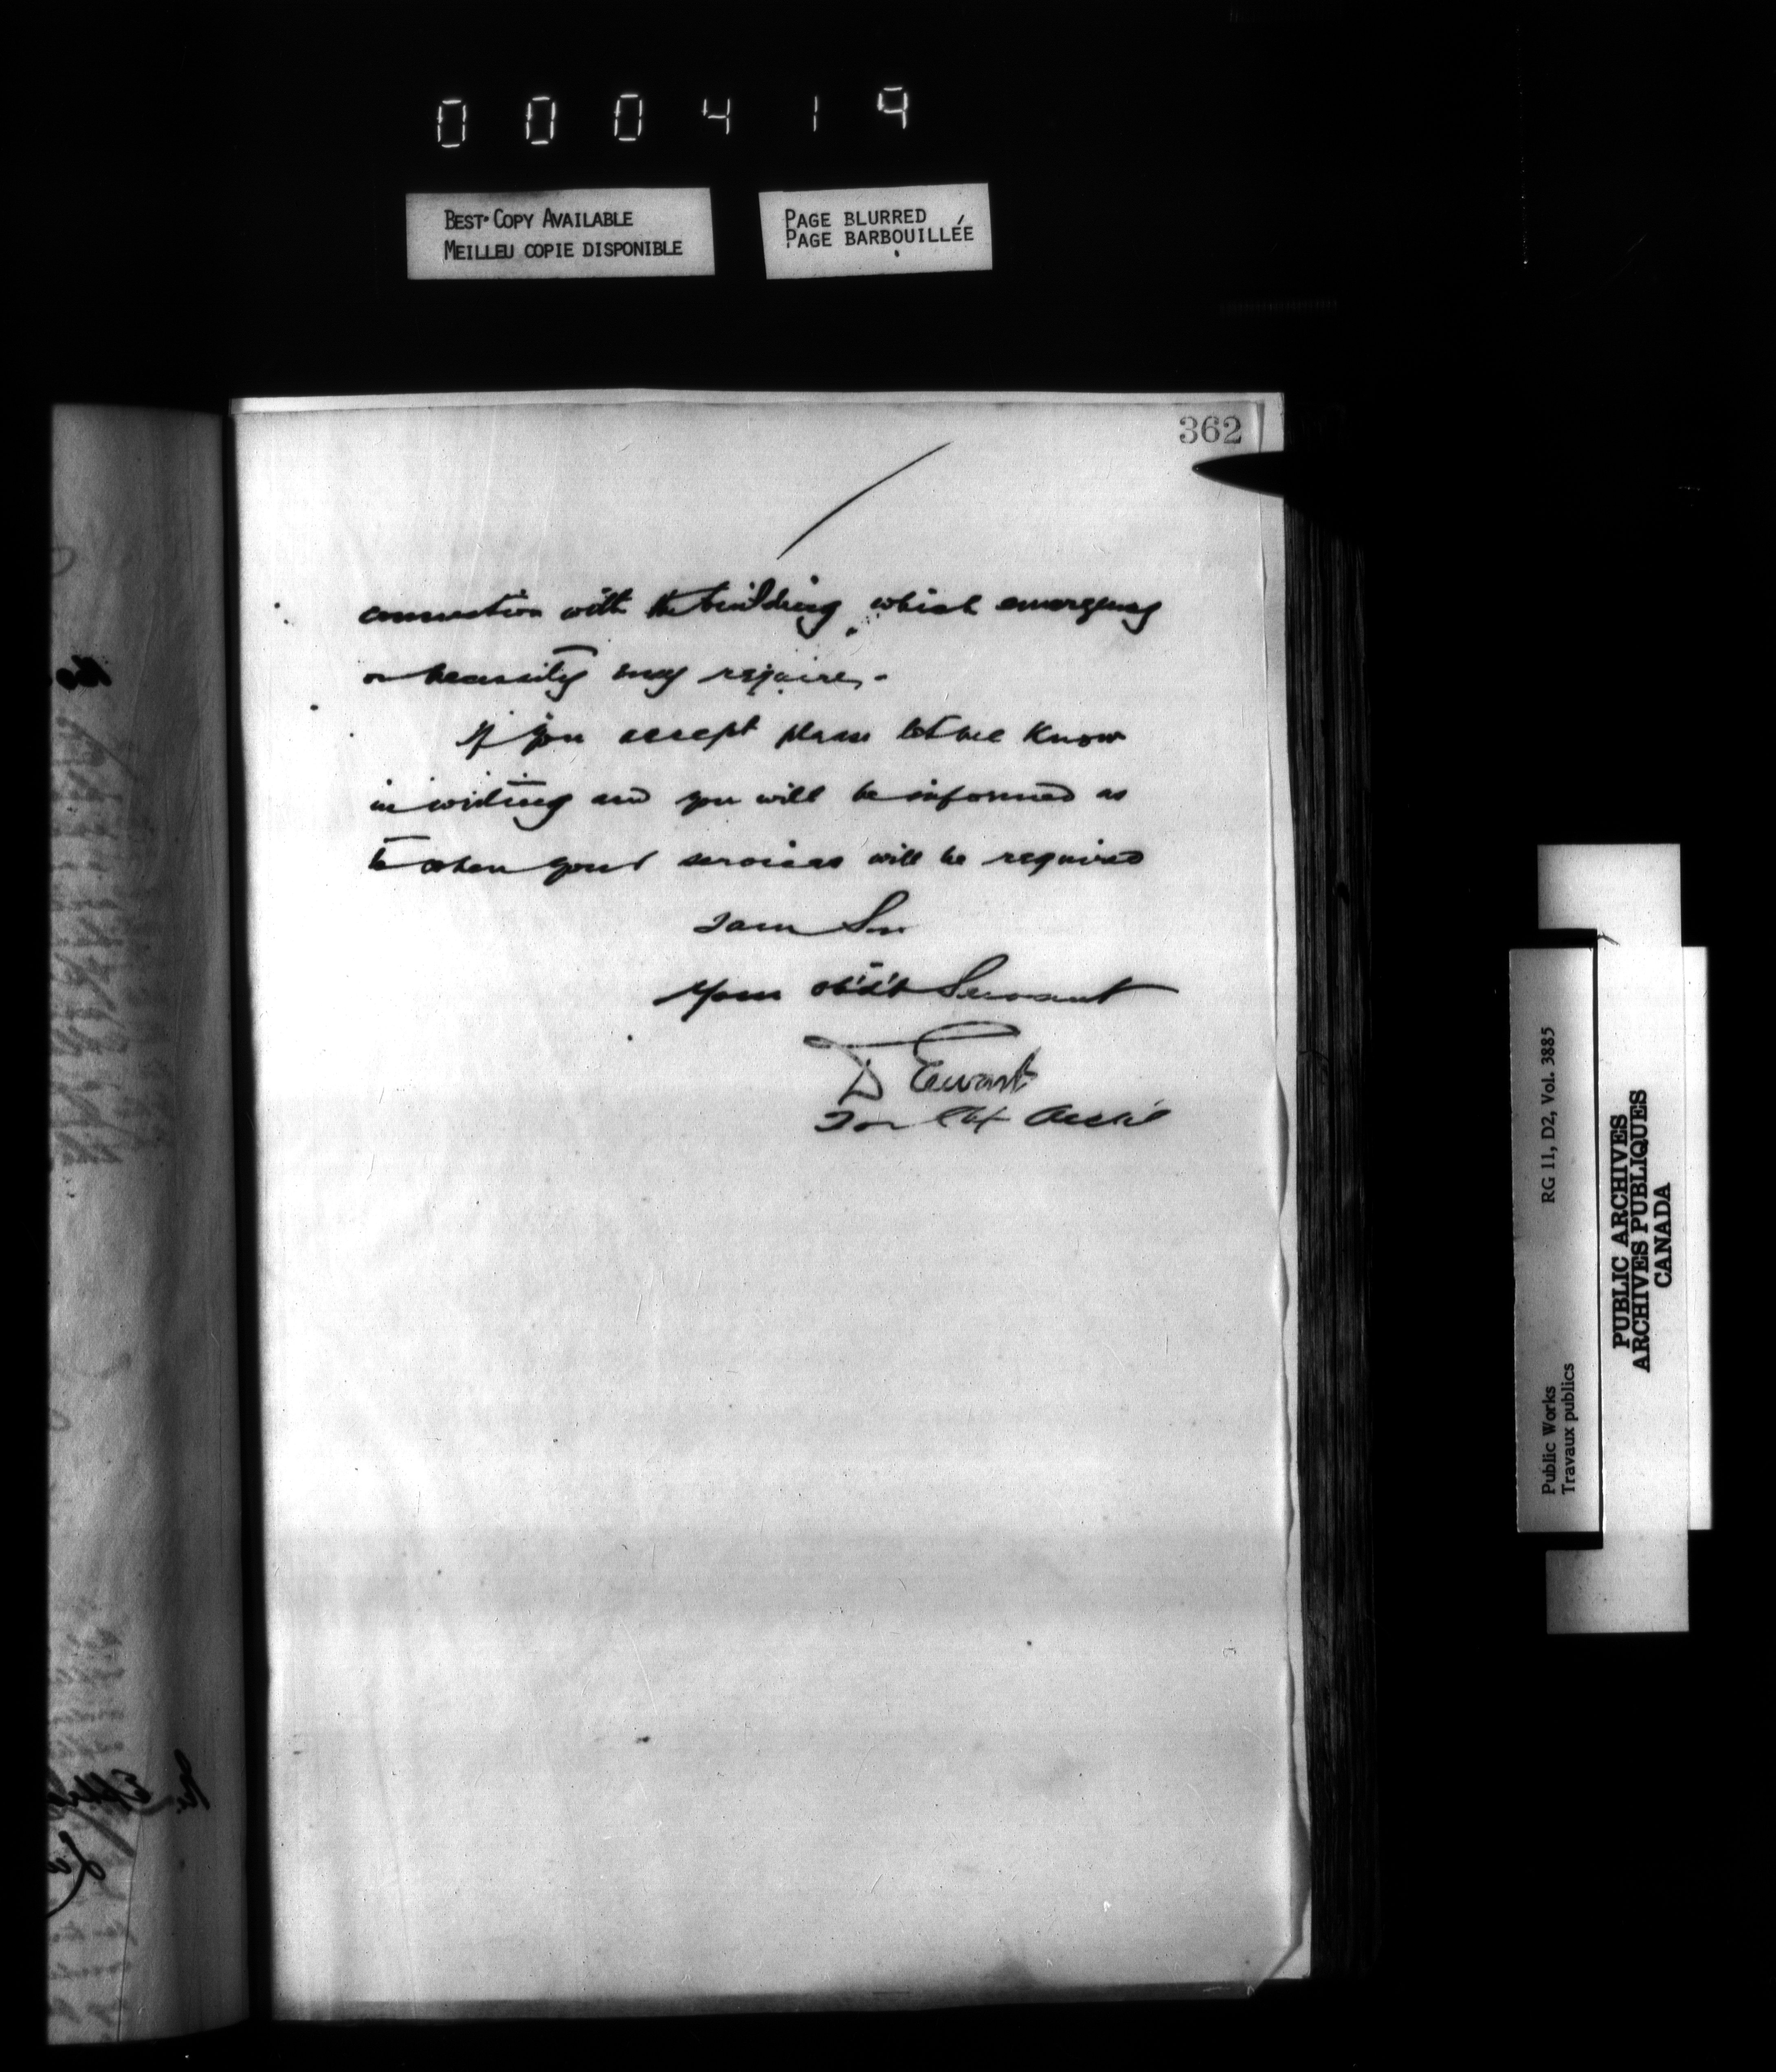 000419
BEST COPY AVAILABLE
MEILLEU COPIE DISPONIBLE
PAGE BLURRED
PAGE BARBOUILLÉE
362
connection with the building, which emergency
or necessity may require.
If you accept please let me know
in writing and you will be informed as
to when your services will be required
I am Sir
Your obd't Servant
D Ewart
For Chf Archt
Public Works
Travaux publics
RG 11, D2, Vol. 3885
PUBLIC ARCHIVES
ARCHIVES PUBLIQUES
CANADA